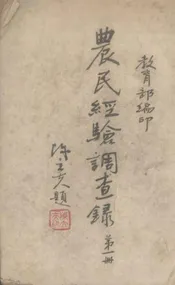 教育部編印
農民經驗調查錄
第一冊
題